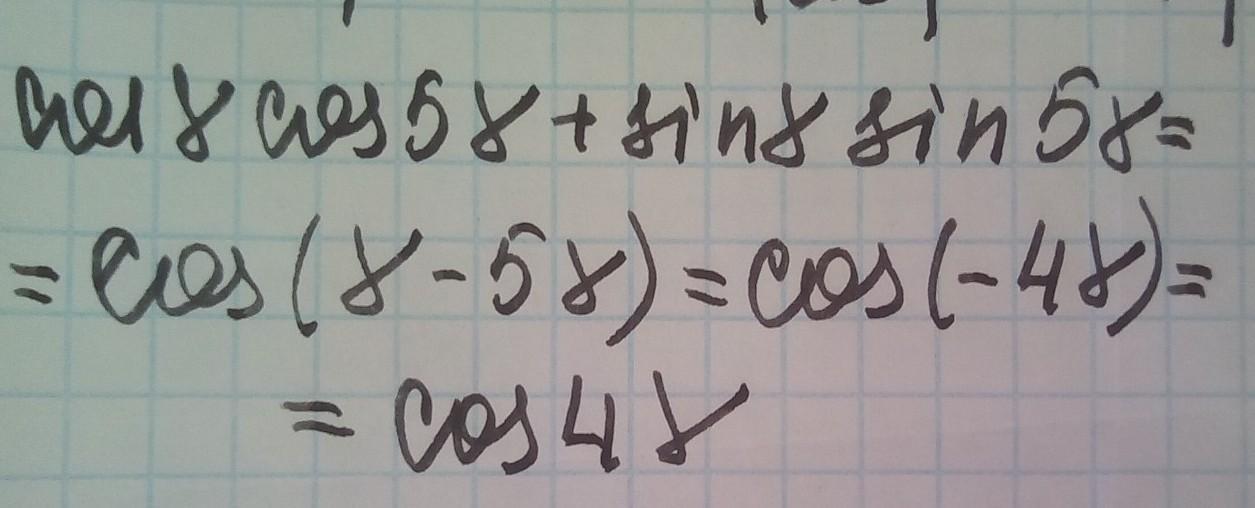 cos γ cos 5γ + sin γ sin 5γ =
= cos(γ - 5γ) = cos(-4γ) =
= cos 4γ